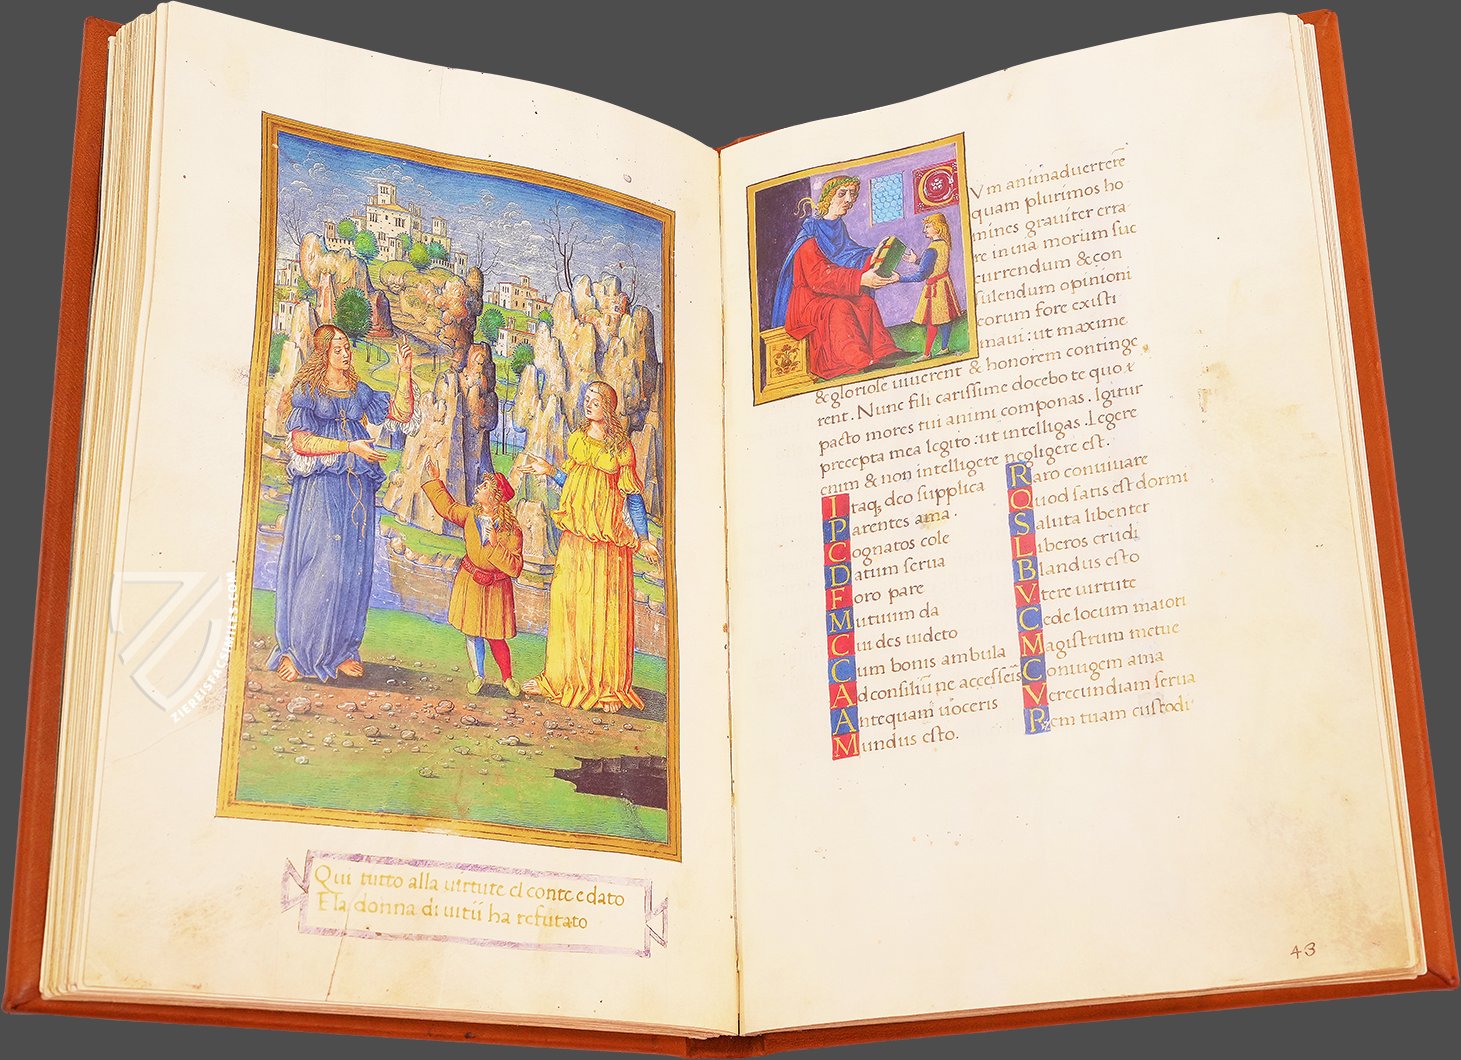 Qui tutto alla uirtute el conte e dato
E la donna di uitii ha refutato
C
Vm animaduerterē
quam plurimos ho
mines grauiter erra
re in uia morum suc
currendum & con
sulendum opinioni
eorum fore existi
maui: ut maxime
& gloriose uiuerent & honorem continge
rent. Nunc fili carissime docebo te quo
pacto mores tui animi componas. Igitur
precepta mea legito: ut intelligas. Legere
enim & non intelligere negligere est.
Itaq; deo supplica
Parentes ama.
Cognatos cole
Datum serua
Foro pare
Mutuum da
Cui des uideto
Cum bonis ambula
Ad consiliū ne accesseis
Antequam uoceris
Mundus esto.
Raro conuiuare
Quod satis est dormi
Saluta libenter
Liberos erudi
Blandus esto
Vtere uirtute
Cede locum maiori
Magistrum metue
Coniugem ama
Verecundiam serua
Rem tuam custodi
43
ZIEREIS FACSIMILES.COM